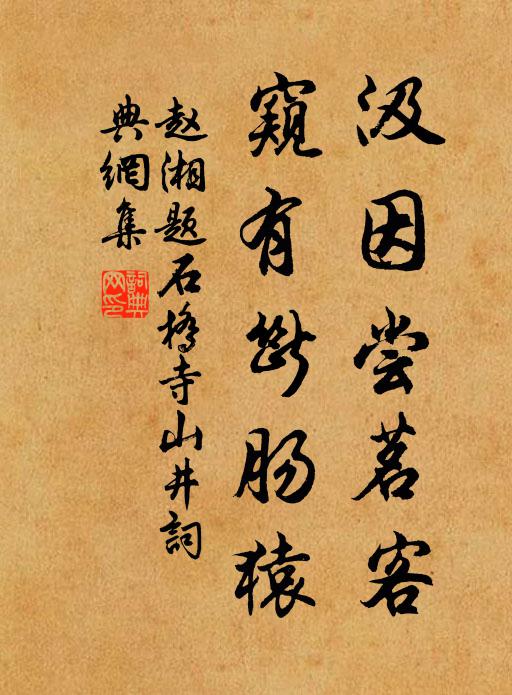 汲因尝茗客
窥有断肠猿
赵湘题石桥寺山井词
典網集
詞典网印